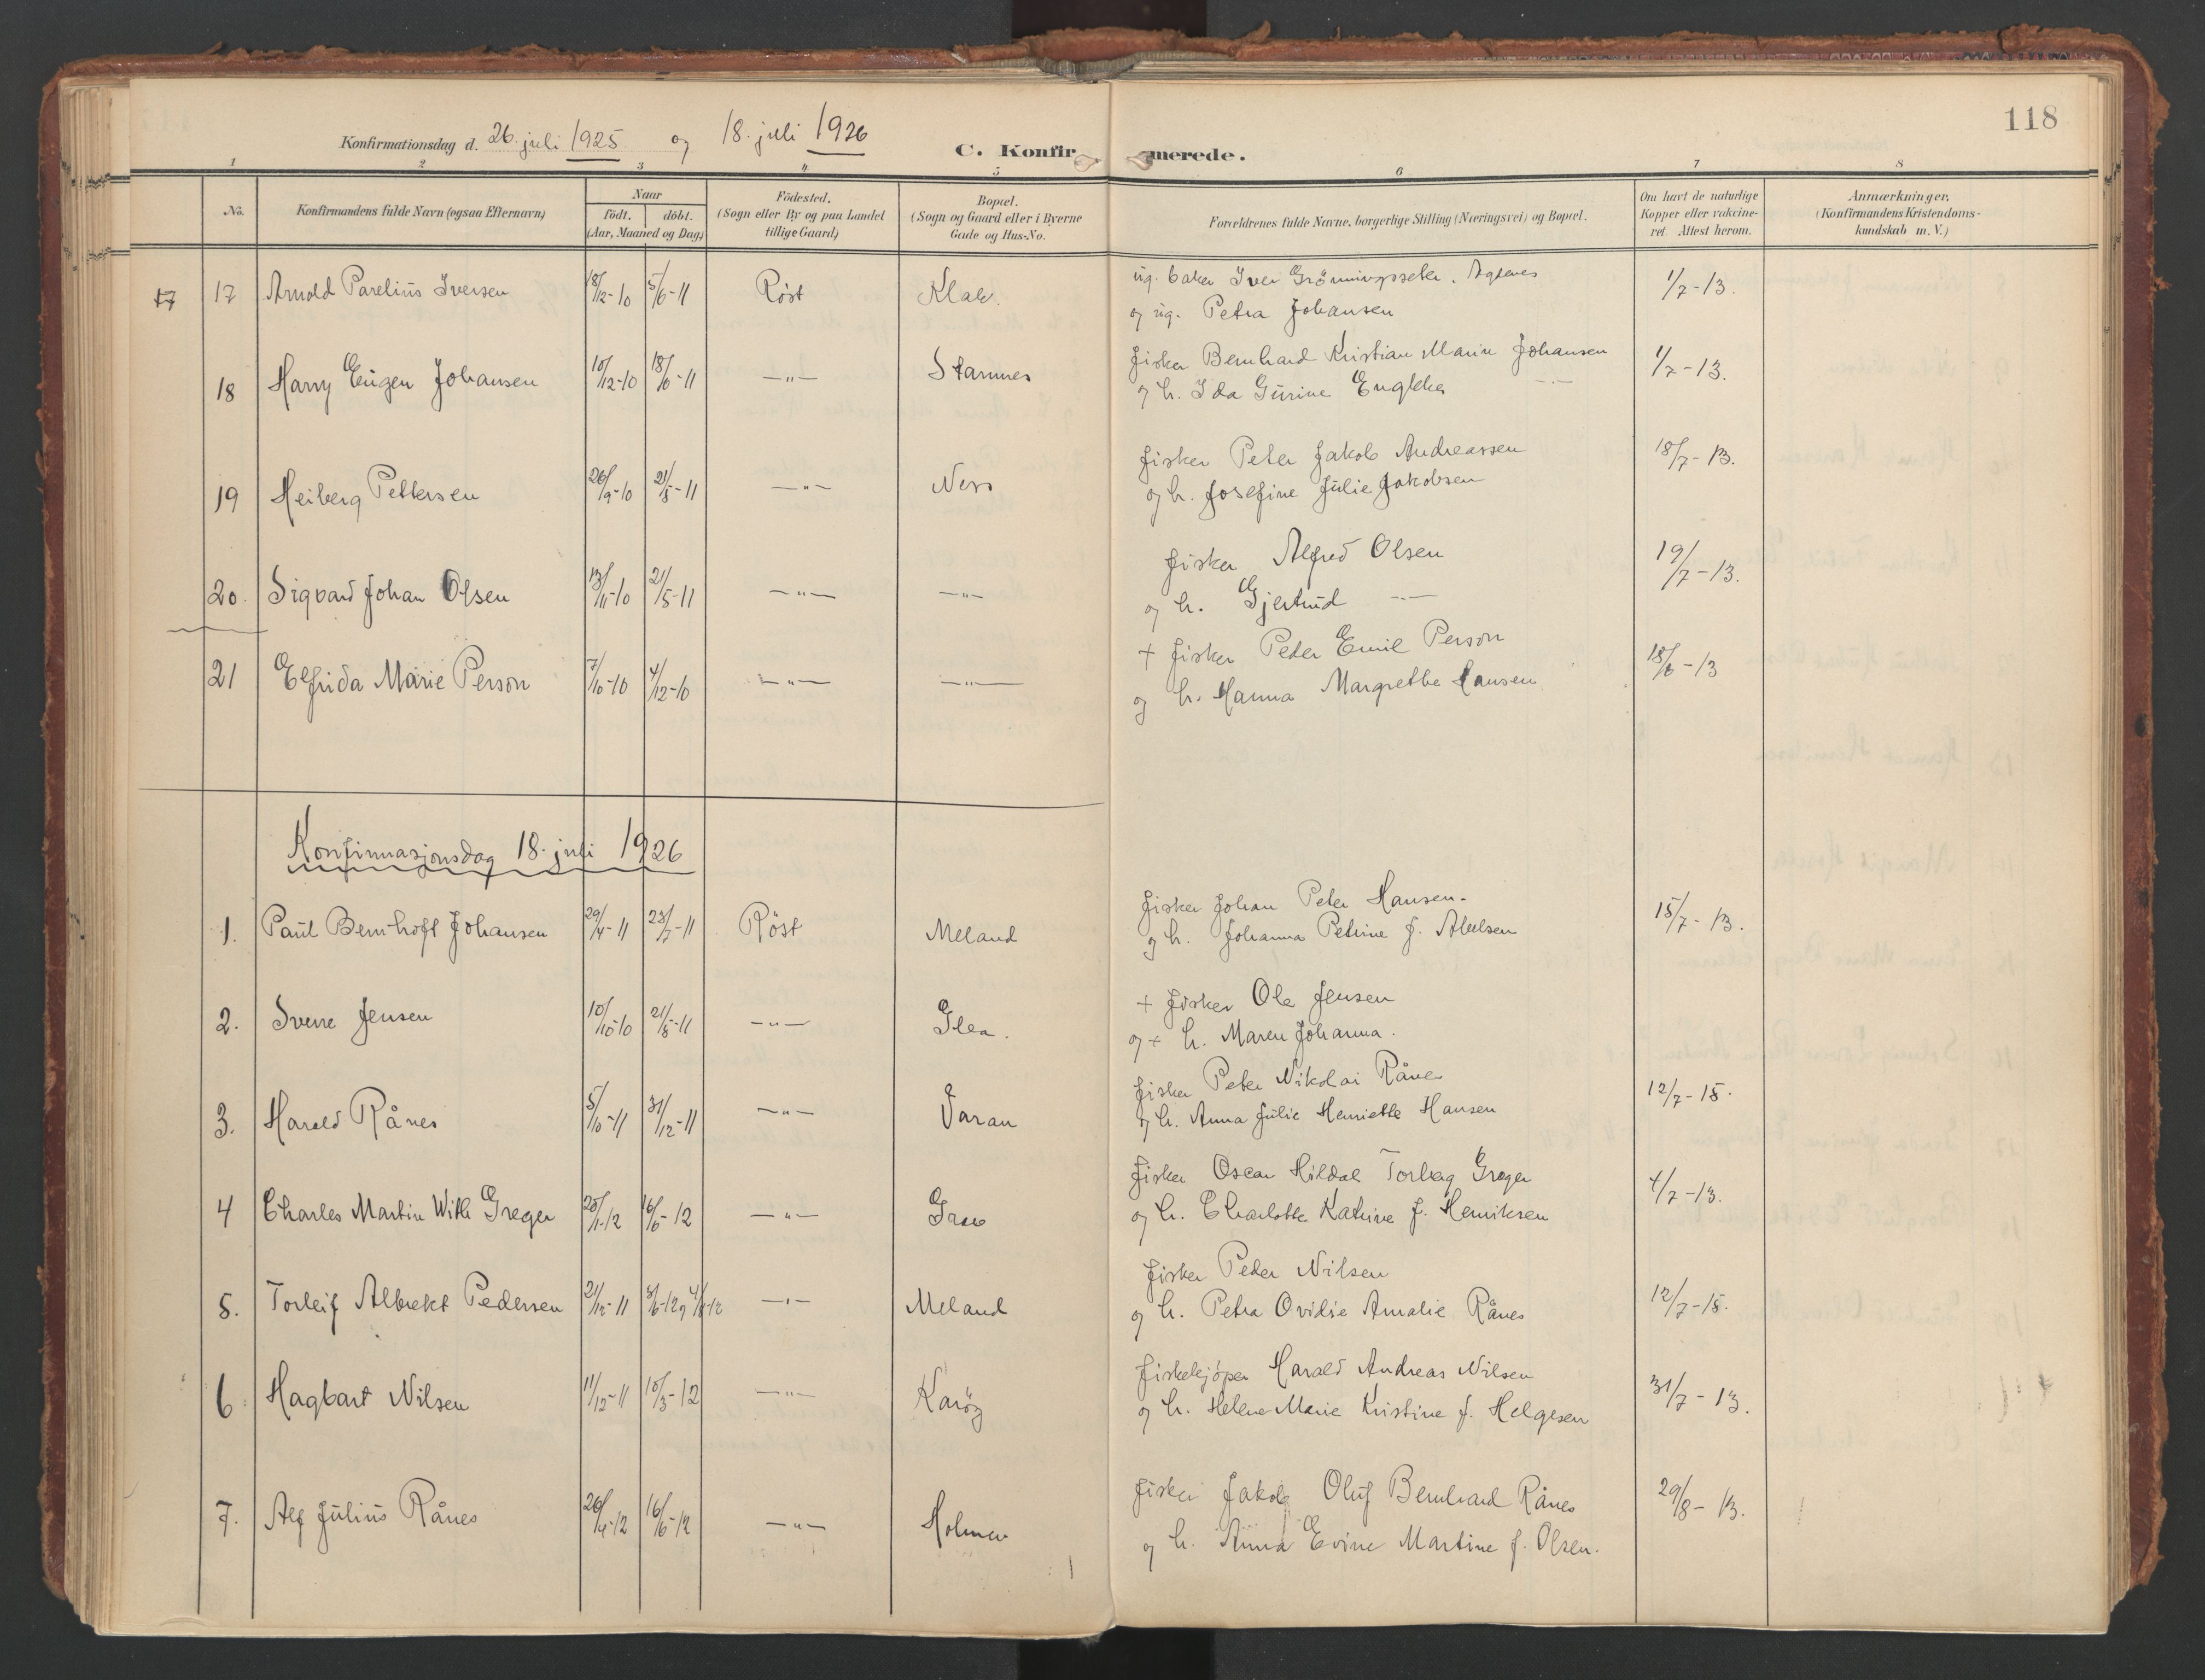 118
Konfirmationsdag d. 26. juli 1925 og 18. juli 1926 C. Konfirmerede.
1 2 3 4 5 6 7 8
No.
Konfirmandens fulde Navn (ogsaa Efternavn)
Naar
födt. döbt.
(Aar, Maaned og Dag)
Födested.
(Sogn eller By og paa Landet
tillige Gaard)
Bopæl.
(Sogn og Gaard eller i Byerne
Gade og Hus-No.
Forældrenes fulde Navne, borgerlige Stilling (Næringsvei) og Bopæl.
Om havt de naturlige
Kopper eller vakcine-
ret. Attest herom.
Anmærkninger.
(Konfirmandens Kristendoms-
kundskab m. V.)
17 17 Arnold Parelius Iversen 18/12-10 5/6-11 Röst ug. baker Iver Grönningsseter.
og ug. Petra Johansen 1/7-13.
18 Harry Eugen Johansen 10/12-10 18/6-11 —„— Stamnes fisker Bernhard Kristian Marin Johansen
og h. Ida Gurine 1/7-13.
19 Heiberg Pettersen 26/9-10 21/5-11 —„— Ness fisker Peter Jakob Andreassen
og h. Josefine Julie Jakobsen 18/7-13.
20. Sigvard Johan Olsen 13/11-10 21/5-11 —„— —„— fisker Alfred Olsen
og h. Gjertrud —„— 19/7-13.
21 Elfrida Marie Person 7/10-10 4/12-10 —„— —„— + fisker Peder Emil Person
og h. Hanna Margrethe Hansen 18/6-13
Konfirmasjonsdag 18. juli 1926
1. Paul Bernhoft Johansen 29/4-11 23/7-11 Röst Meland fisker Johan Peter Hansen.
og h. Johanna Petrine f. Abelsen 15/7-13.
2. Sverre Jensen 10/10-10 21/5-11 —„— Glea. + fisker Ole Jensen
og + h. Maren Johanna.
3. Harald Rånes 5/10-11 31/12-11 —„— Varan fisker Peter Nikolai Rånes
og h. Anna Julie Henriette Hansen 12/7-15.
4 Charles Martin With Greger 25/1-12 16/6-12 —„— fisker Oscar Hildal Torberg Greger
og h. Charlotte Katrine f. Henriksen 4/7-13.
5. Torleif Albrekt Pedersen 21/12-11 —„— Meland fisker Peder Nilsen
og h. Petra Ovidie Amalie Rånes 12/7-15.
6 Hagbart Nilsen 11/12-11 10/3-12 —„— Karöy fiskekjöper Harald Andreas Nilsen
og h. Helene Marie Kristine f. Helgesen 31/7-13.
7. Alf Julius Rånes 26/4-12 16/6-12 —„— Holmen fisker Jakob Oluf Bernhard Rånes
og h. Anna Evine Martine f. Olsen. 29/8-13.